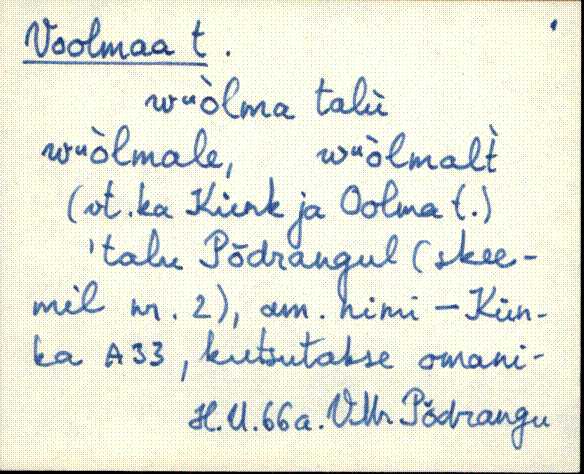 Voolmaa t.
wᵘòlma talù
wᵘòlmale, wᵘòlmalt̀
(vt. ka Künk ja Oolma t.)
'talu Põdrangul (skee-
mil nr. 2), am. nimi – Kün-
ka A33, kutsutakse omani-
H.U. 66a. V.Mr Põdrangu